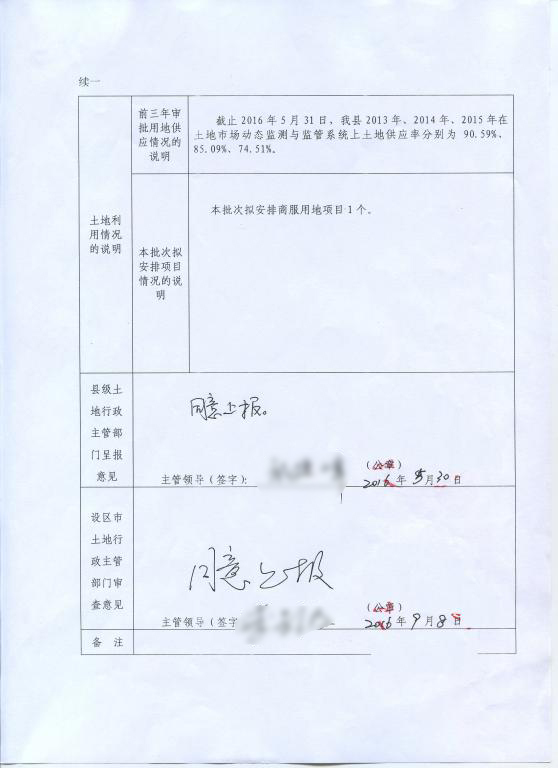 续一
前三年审
批用地供
应情况的
说明
截止 2016 年 5 月 31 日，我县 2013 年、2014 年、2015 年在
土地市场动态监测与监管系统上土地供应率分别为 90.59%、
85.09%、74.51%。
土地利
用情况
的说明
本批次拟
安排项目
情况的说
明
本批次拟安排商服用地项目 1 个。
县级土
地行政
主管部
门呈报
意见
同意上报。
主管领导（签字）：
（公章）
2016 年 5 月 30 日
设区市
土地行
政主管
部门审
查意见
同意上报
主管领导（签字
（公章）
2016 年 9 月 8 日
备 注